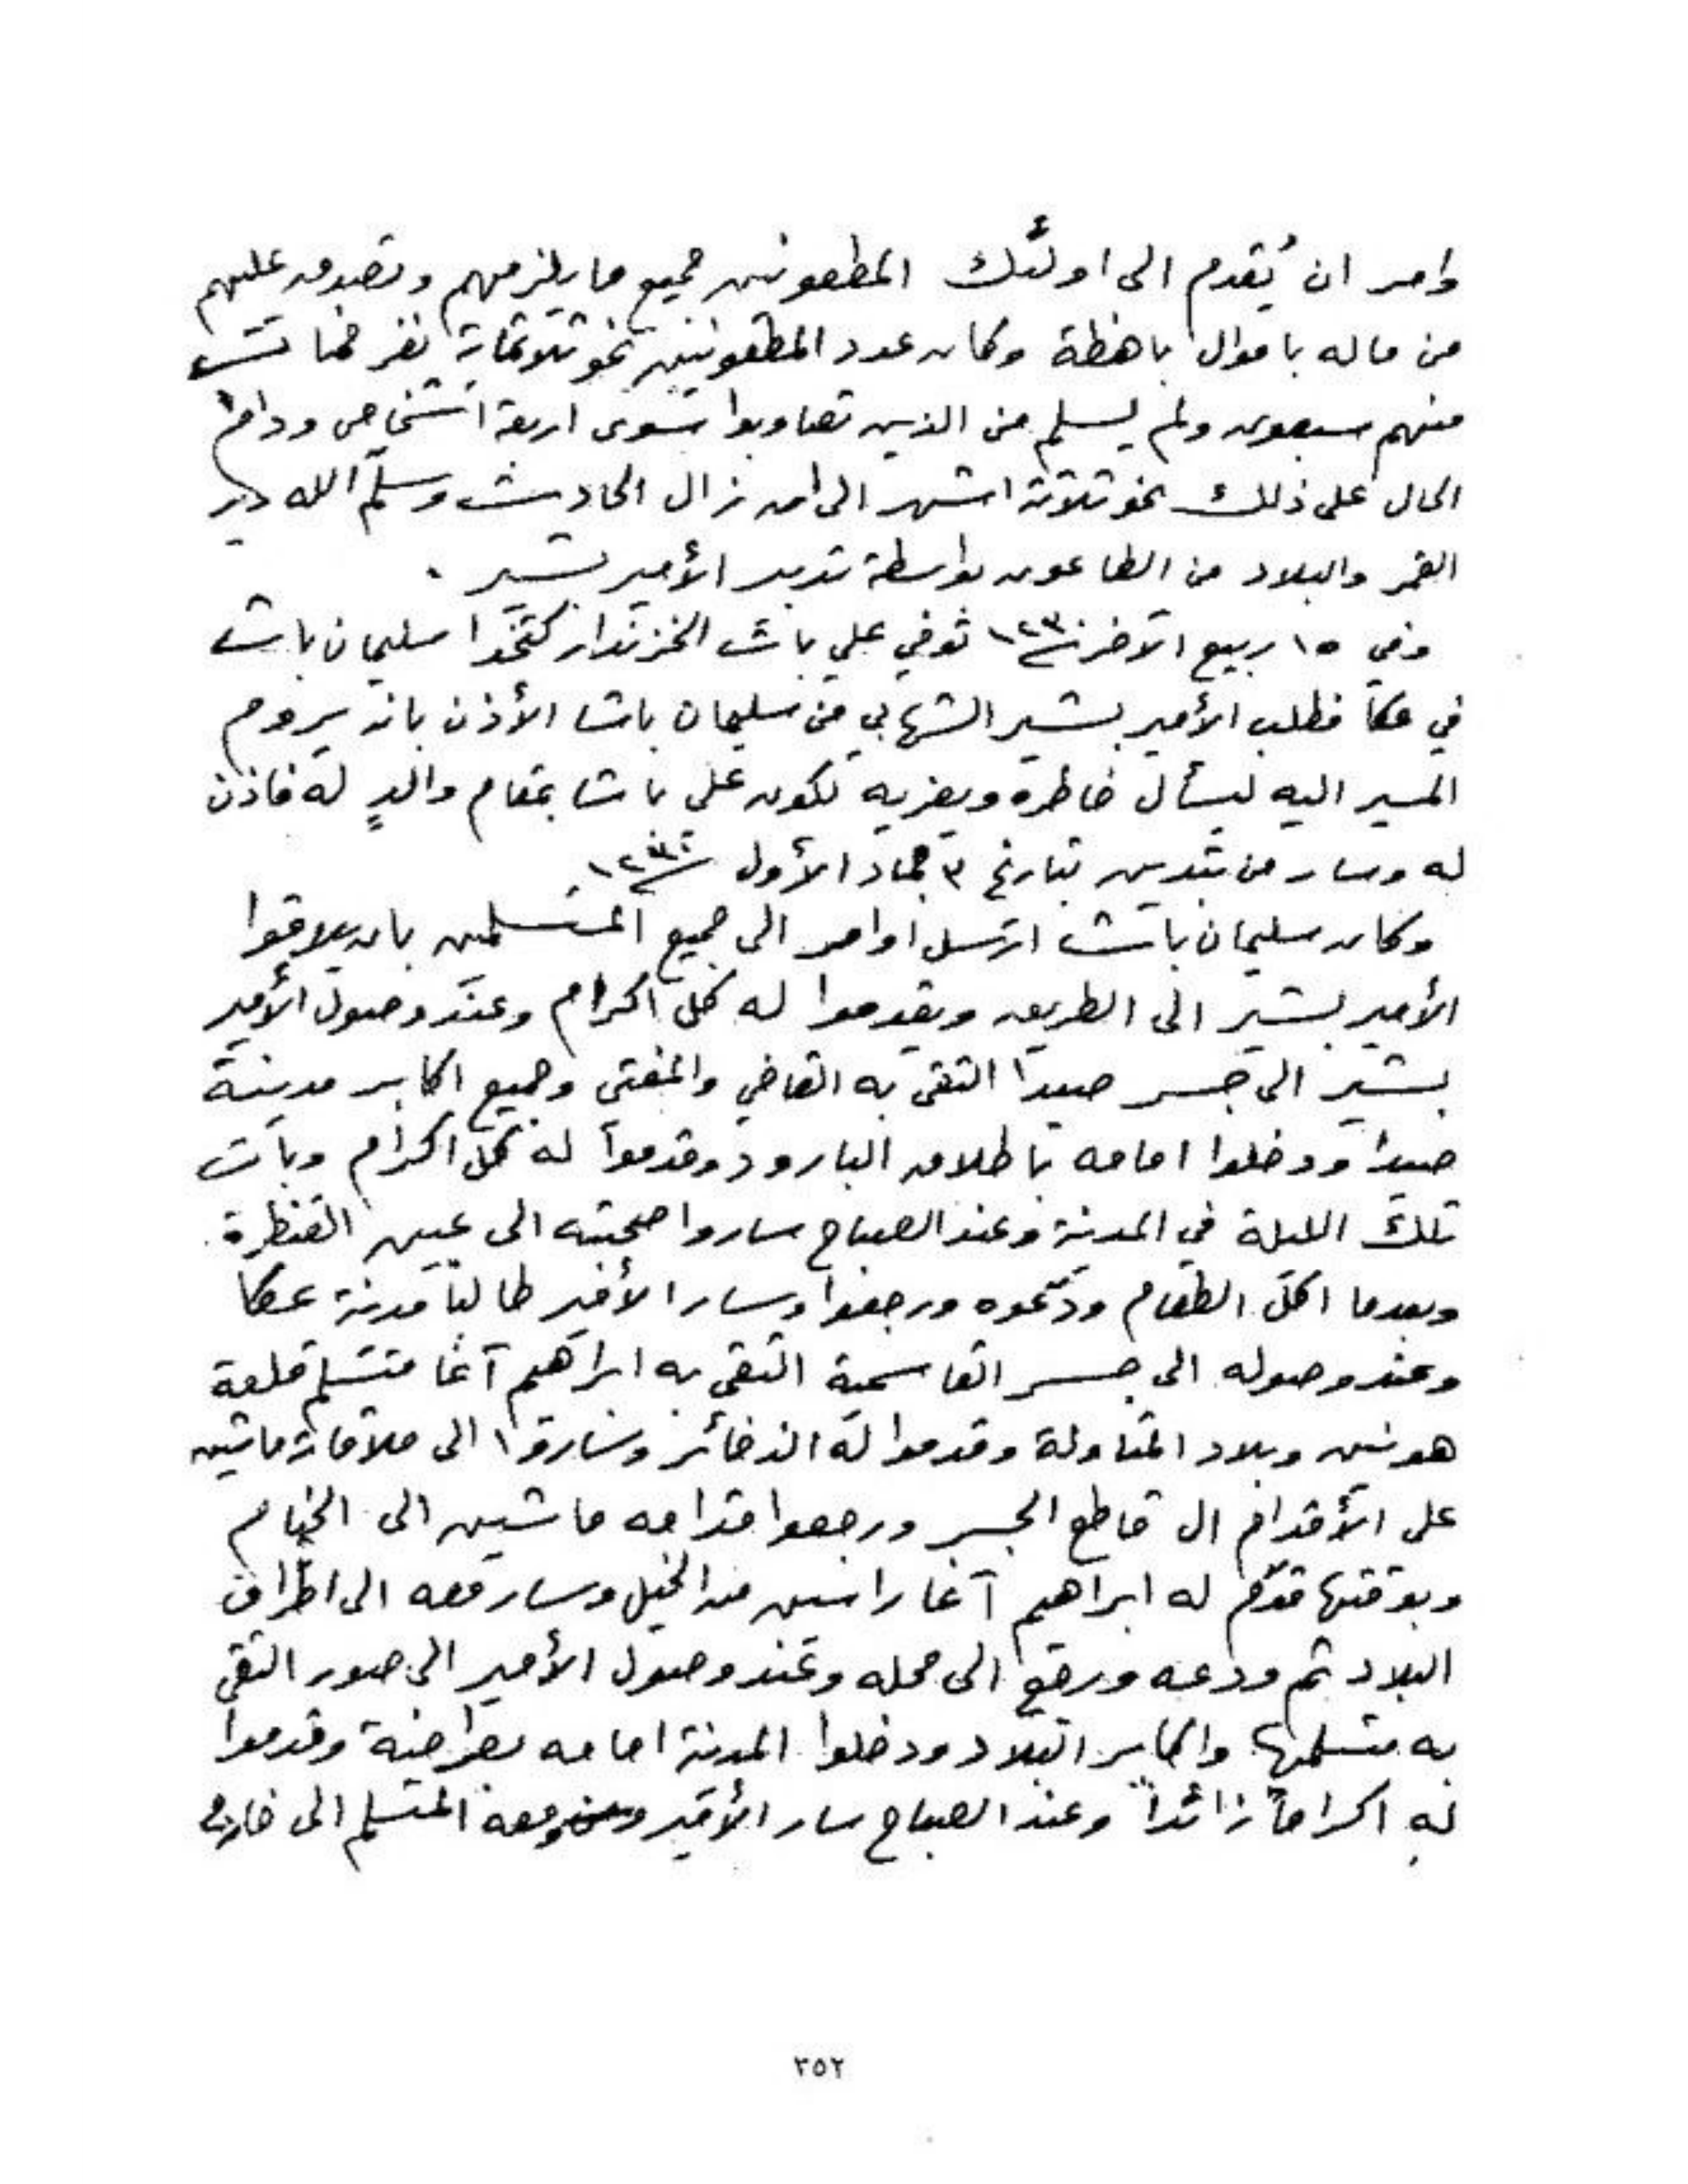 وامر ان يُقدم الى اولئك المطعونين جميع ما يلزمهم وتصدق عليهم
من ماله باموال باهظة وكان عدد المطعونين نحو ثلاثماية نفر فماتت
منهم سبعون ولم يسلم من الذين تصاوبوا سوى اربعة اشخاص ودام
الحال على ذلك نحو ثلاثة اشهر الى ان زال الحادث وسلّم الله دير
القمر والبلاد من الطاعون بواسطة تدبير الأمير بشير .
وفي ١٥ ربيع الآخر سنة ١٢٣٠ توفي علي باشا الخزندار كتخدا سليمان باشا
في عكا فطلب الأمير بشير الشهابي من سليمان باشا الأذن بانه يروم
المسير اليه ليسأل خاطره ويعزيه لكون علي باشا بمقام والدٍ له فاذن
له وسار من بتدين بتاريخ ٣ جماد الأول سنة ١٢٣٠
وكان سليمان باشا ارسل اوامر الى جميع المتسلمين بان يلاقوا
الأمير بشير الى الطريق ويقدموا له كل اكرام وعند وصول الأمير
بشير الى جسر صيدا التقى به القاضي والمفتى وجميع اكابر مدينة
صيدا ودخلوا امامه باطلاق البارود وقدموا له كل اكرام وبات
تلك الليلة في المدينة وعند الصباح ساروا صحبته الى عين القنطرة
وبعدما اكل الطعام ودّعوه ورجعوا وسار الأمير طالباً مدينة عكا
وعند وصوله الى جسر القاسمية التقى به ابراهيم آغا متسلم قلعة
هونين وبلاد المتاولة وقدموا له الذخائر وساروا الى ملاقاته ماشين
على الأقدام ال قاطع الجسر ورجعوا قدامه ماشين الى الخيام
وبوقتها قدّم له ابراهيم آغا راسين من الخيل وسار معه الى اطراف
البلاد ثم ودعه ورجع الى محله وعند وصول الأمير الى صور التقى
به متسلمها واكابر البلاد ودخلوا المدينة امامه بعراضة وقدموا
له اكراماً زائداً وعند الصباح سار الأمير ومعه المتسلم الى خارج
٣٥٢